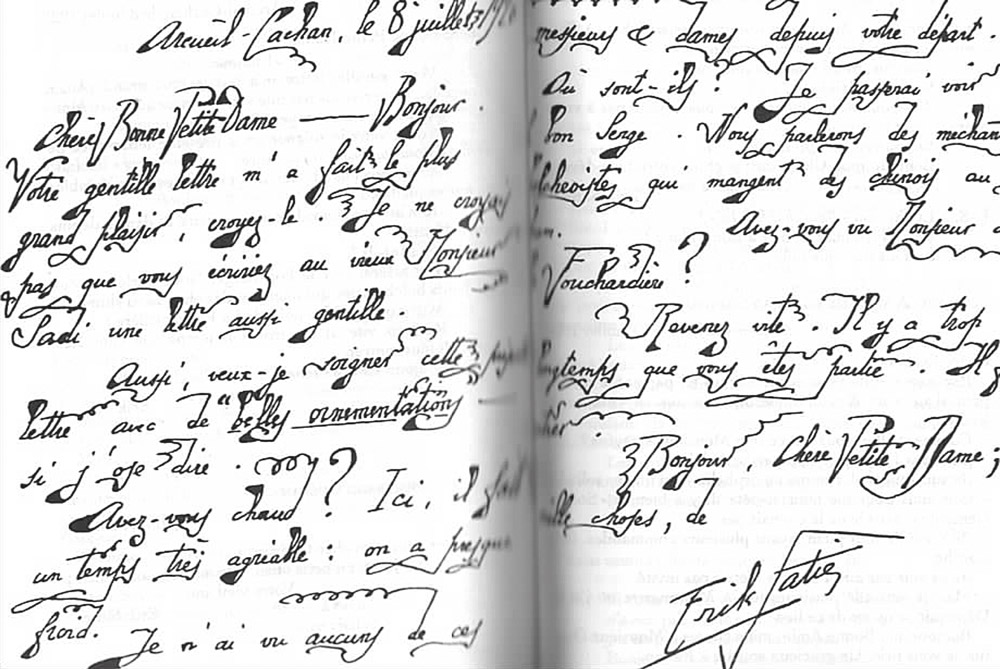 Arcueil-Cachan, le 8 juillet
Chère Bonne Petite Dame —— Bonjour.
Votre gentille lettre m'a fait le plus
grand plaisir, croyez-le. Je ne croyais
pas que vous écririez au vieux Monsieur
Sadi une lettre aussi gentille.
Aussi, veux-je soigner cette
lettre avec de "belles ornementations
si j'ose dire. ?
Avez-vous chaud? Ici, il fait
un temps très agréable: on a presque
froid. Je n'ai vu aucuns de ces
messieurs & dames depuis votre départ.
Où sont-ils? Je passerai voir
bon Serge. Nous parlerons des méchan
qui mangent des chinois au
Avez-vous vu Monsieur
Fouchardière?
Revenez vite. Il y a trop
longtemps que vous êtes partie. Il
Bonjour, Chère Petite Dame;
mille choses, de
Erik Satie